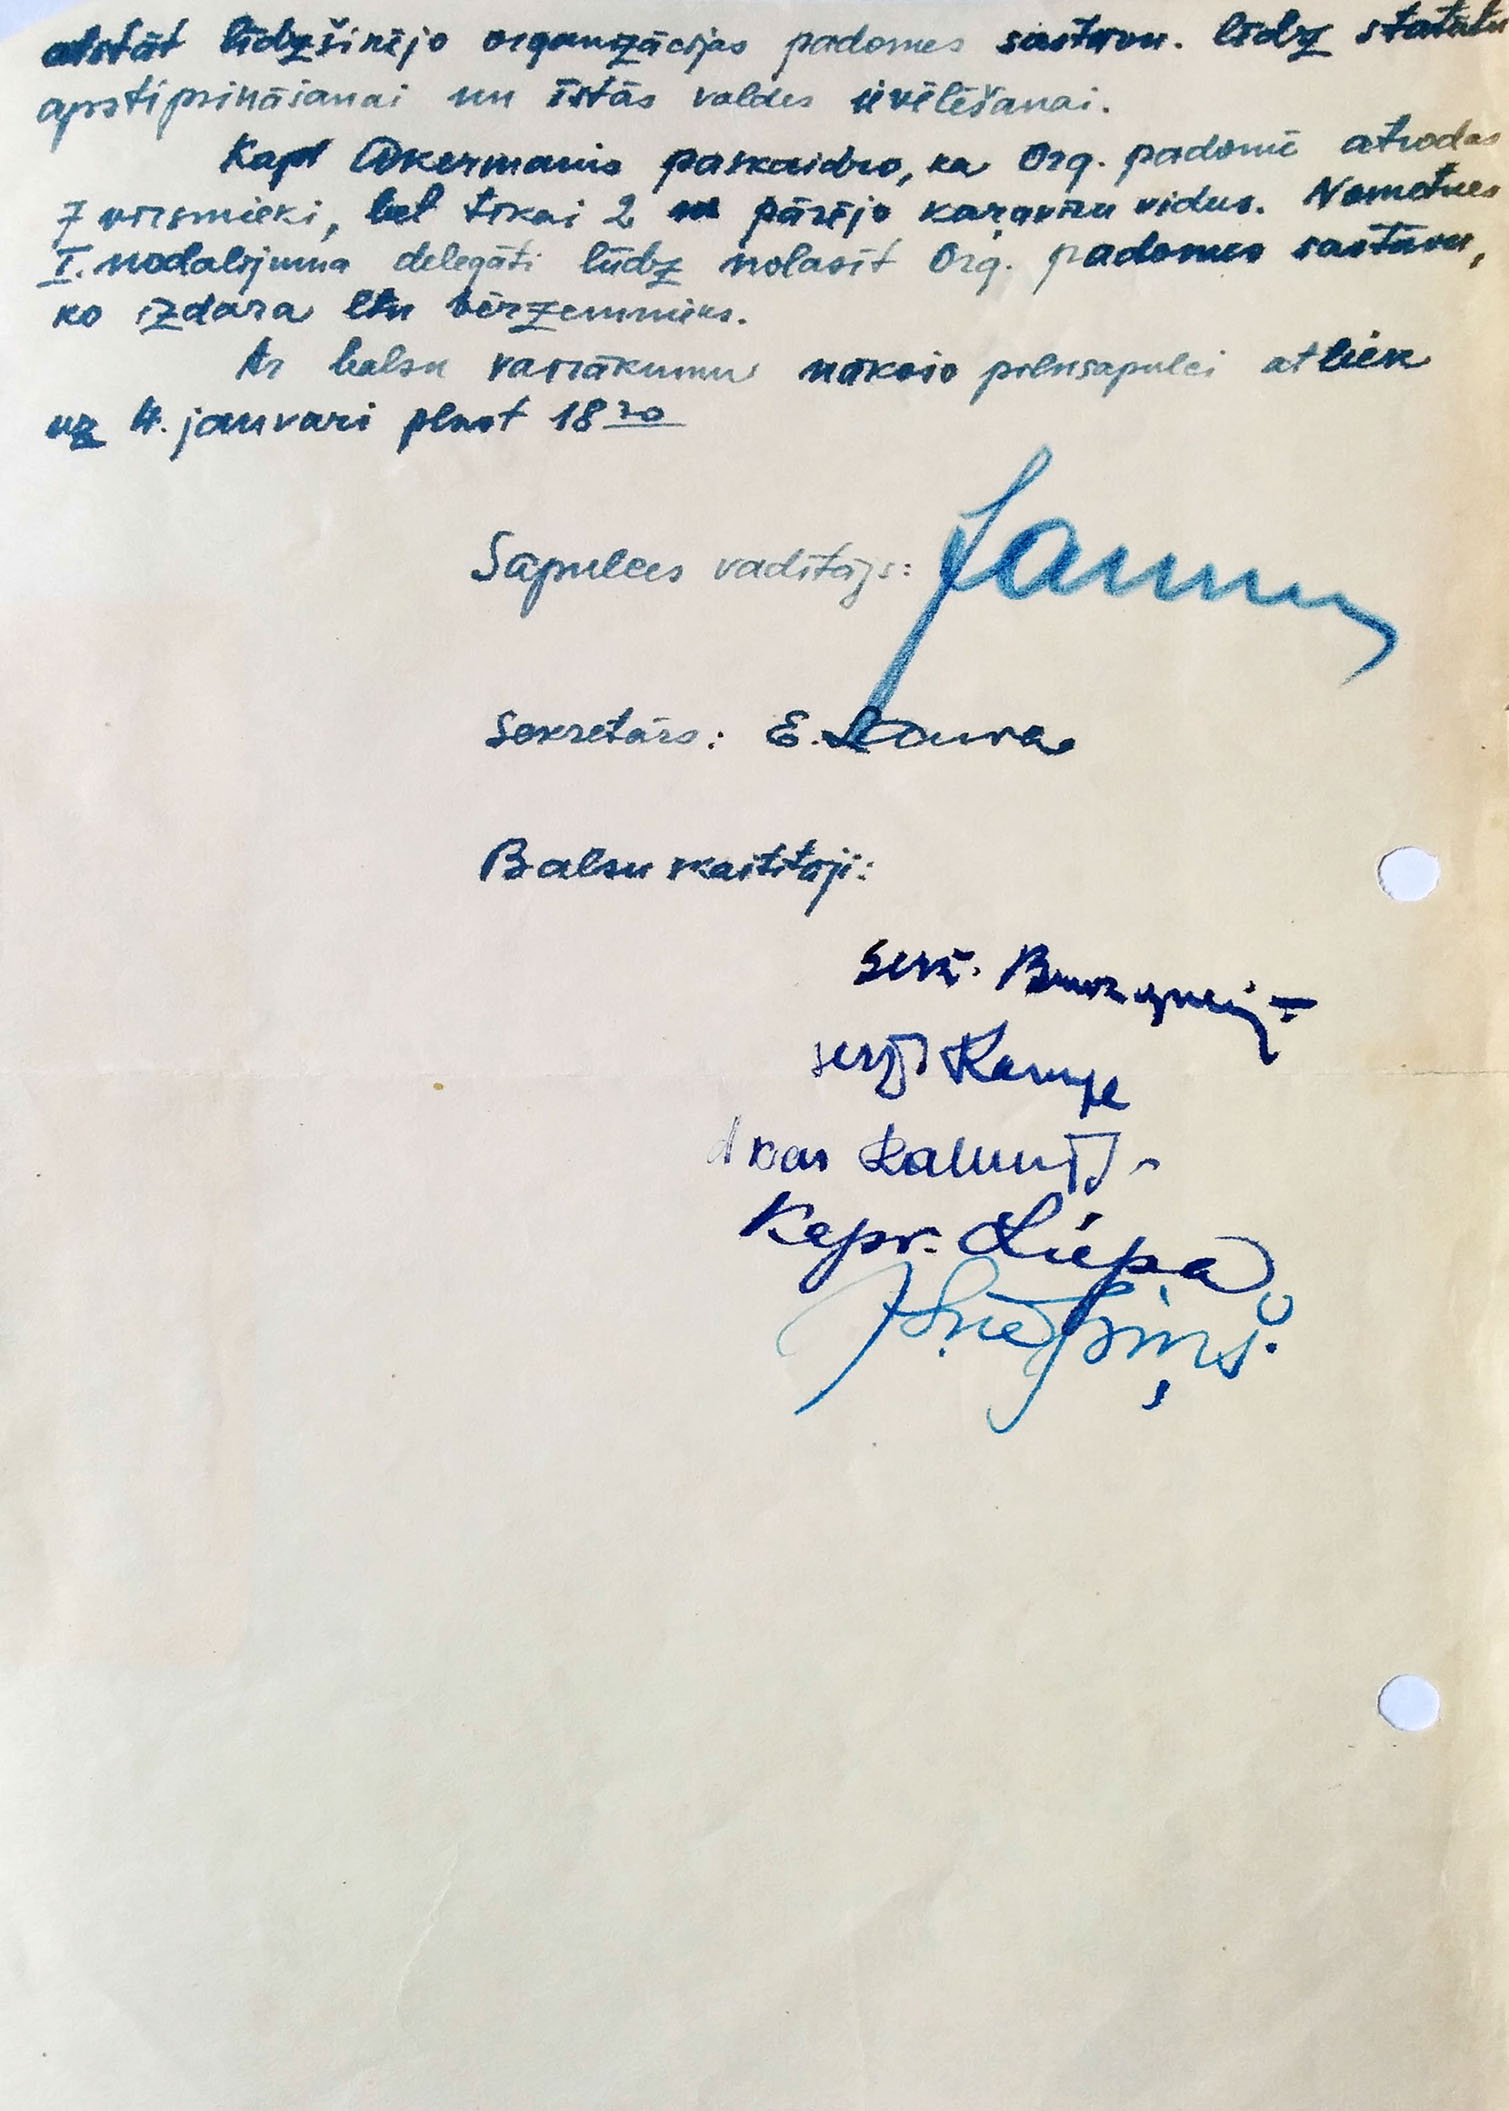 atstāt līdzšinējo organizācijas padomes sastāvu līdz statūtu
apstiprināšanai un īstās valdes ievēlēšanai.
Kapt Akermanis paskaidro, ka Org. padomē atrodas
7 virsnieki, bet tikai 2 no pārējo karavīru vidus. Nometnes
I. nodalījuma delegāti lūdz nolasīt Org. padomes sastāvu,
ko izdara ltn Bērzemnieks.
Ar balsu vairākumu nākošo pilnsapulci atliek
uz 4. janvari plkst 18 30
Sapulces vadītājs:
Sekretārs: E. Laura
Balsu skaitītāji:
serž.
serž Kampe
dkar
Kapr. Liepa